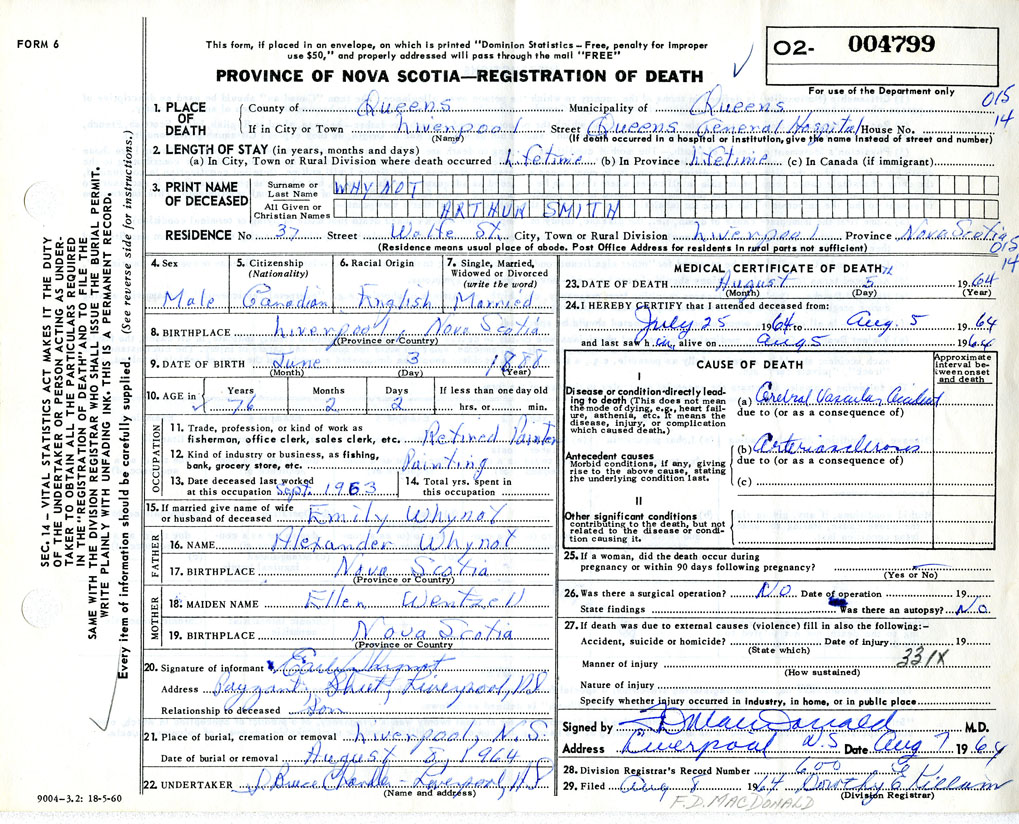 FORM 6
This form, if placed in an envelope, on which is printed "Dominion Statistics – Free, penalty for improper
use $50," and properly addressed will pass through the mail "FREE"
PROVINCE OF NOVA SCOTIA—REGISTRATION OF DEATH
O2- 004799
For use of the Department only
015
14
1. PLACE OF DEATH
County of Queens Municipality of Queens
If in City or Town Liverpool Street Queens General Hospital House No.
(Name) (If death occurred in a hospital or institution, give the name instead of street and number)
2. LENGTH OF STAY (in years, months and days)
(a) In City, Town or Rural Division where death occurred Lifetime (b) In Province Lifetime (c) In Canada (if immigrant)
3. PRINT NAME OF DECEASED
Surname or Last Name WHYNOT
All Given or Christian Names ARTHUR SMITH
RESIDENCE No 37 Street Wolfe St. City, Town or Rural Division Liverpool Province Nova Scotia
(Residence means usual place of abode. Post Office Address for residents in rural parts not sufficient)
015
14
4. Sex Male
5. Citizenship (Nationality) Canadian
6. Racial Origin English
7. Single, Married, Widowed or Divorced (write the word) Married
8. BIRTHPLACE Liverpool, Nova Scotia
(Province or Country)
9. DATE OF BIRTH June 3 1888
(Month) (Day) (Year)
10. AGE in Years 76 Months 2 Days 2 If less than one day old hrs. or min.
OCCUPATION
11. Trade, profession, or kind of work as
fisherman, office clerk, sales clerk, etc. Retired Painter
12. Kind of industry or business, as fishing,
bank, grocery store, etc. Painting
13. Date deceased last worked
at this occupation Sept. 1963
14. Total yrs. spent in
this occupation
15. If married give name of wife
or husband of deceased Emily Whynot
FATHER
16. NAME Alexander Whynot
17. BIRTHPLACE Nova Scotia
(Province or Country)
MOTHER
18. MAIDEN NAME Ellen Wentzell
19. BIRTHPLACE Nova Scotia
(Province or Country
20. Signature of informant Whynot
Address Payzant Street, Liverpool, N.S.
Relationship to deceased Son
21. Place of burial, cremation or removal Liverpool N.S.
Date of burial or removal August 8, 1964
22. UNDERTAKER J. Bruce Chandler - Liverpool, N.S.
(Name and address)
MEDICAL CERTIFICATE OF DEATH
23. DATE OF DEATH August 5th 1964
(Month) (Day) (Year)
24. I HEREBY CERTIFY that I attended deceased from:
July 25 1964 to Aug. 5 1964
and last saw him alive on Aug 5 1964
CAUSE OF DEATH
Approximate interval between onset and death
I
Disease or condition directly leading to death (This does not mean the mode of dying, e.g., heart failure, asthenia, etc. It means the disease, injury, or complication which caused death.)
(a) Cerebral Vascular Accident
due to (or as a consequence of)
Antecedent causes
Morbid conditions, if any, giving rise to the above cause, stating the underlying condition last.
(b) Arteriosclerosis
due to (or as a consequence of)
(c)
II
Other significant conditions
contributing to the death, but not related to the disease or condition causing it.
25. If a woman, did the death occur during
pregnancy or within 90 days following pregnancy?
(Yes or No)
26. Was there a surgical operation? NO. Date of operation 19
State findings Was there an autopsy? No.
27. If death was due to external causes (violence) fill in also the following:-
Accident, suicide or homicide? Date of injury 19
(State which)
331X
Manner of injury
(How sustained)
Nature of injury
Specify whether injury occurred in industry, in home, or in public place
Signed by F D MacDonald M.D.
Address Liverpool N.S Date Aug 7 1964
28. Division Registrar's Record Number 600
29. Filed Aug 8 1964 Dorothy E Killam
(Division Registrar)
F.D. MACDONALD
9004-3.2: 18-5-60
SEC. 14 – VITAL STATISTICS ACT MAKES IT THE DUTY
OF THE UNDERTAKER OR PERSON ACTING AS UNDER-
TAKER TO OBTAIN ALL THE PARTICULARS REQUIRED
IN THE "REGISTRATION OF DEATH" AND TO FILE THE
SAME WITH THE DIVISION REGISTRAR WHO SHALL ISSUE THE BURIAL PERMIT.
WRITE PLAINLY WITH UNFADING INK. THIS IS A PERMANENT RECORD.
Every item of information should be carefully supplied. (See reverse side for instructions.)